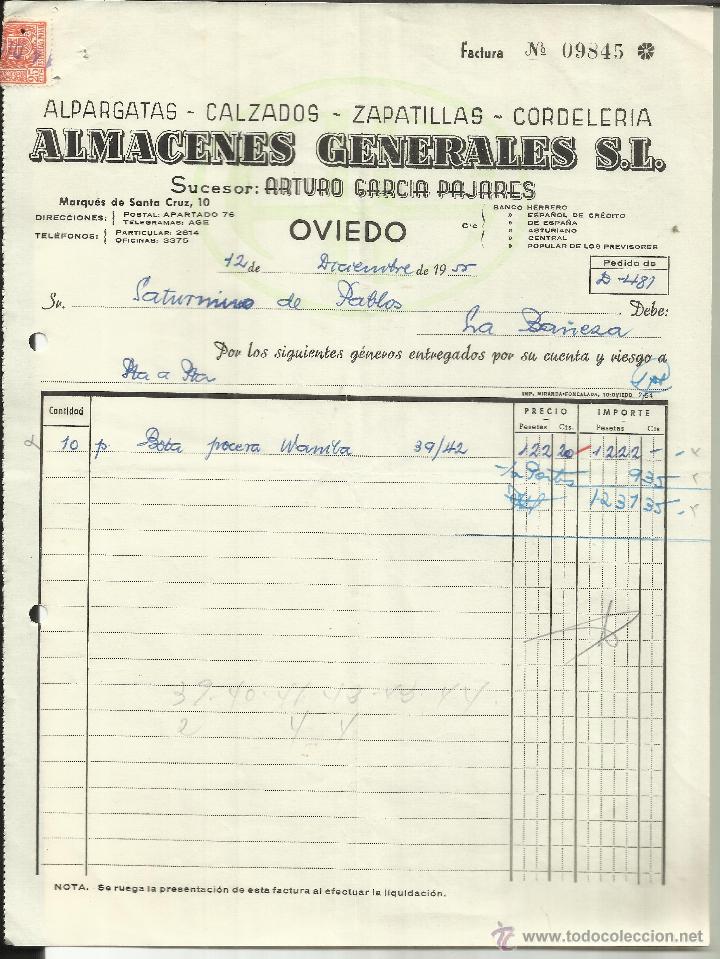 Factura Nº 09845
ALPARGATAS - CALZADOS - ZAPATILLAS - CORDELERIA
ALMACENES GENERALES S.L.
Sucesor: ARTURO GARCIA PAJARES
Marqués de Santa Cruz, 10
DIRECCIONES: POSTAL: APARTADO 76
TELEGRAMAS: AGE
TELÉFONOS: PARTICULAR: 2614
OFICINAS: 3375
OVIEDO
C/c
BANCO HERRERO
» ESPAÑOL DE CRÉDITO
» DE ESPAÑA
» ASTURIANO
» CENTRAL
» POPULAR DE LOS PREVISORES
12 de Diciembre de 1955
Pedido de
D-481
Sr. Saturnino de Pablos Debe:
La Bañeza
Por los siguientes géneros entregados por su cuenta y riesgo a
Sta a Sta
IMP. MIRANDA-FONCALADA, 10-OVIEDO 7-54
Cantidad PRECIO IMPORTE
Pesetas Cts. Pesetas Cts
10 p. Bota pocera Wamba 39/42 122 20 1222 -
Portes 9 35
1231 35
39-40-41-43-43-44
2 4 4
NOTA. - Se ruega la presentación de esta factura al efectuar la liquidación.
www.todocoleccion.net